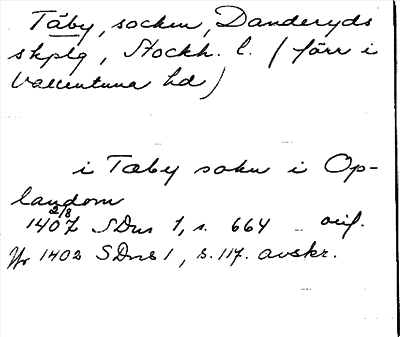 Täby, socken, Danderyds
skplg, Stockh. l. (förr i
Vallentuna hd)
i Tæby sokn i Op-
landom
1407 2/8 SDns 1, s. 664 orig.
1402 SDns 1, s. 117. avskr.